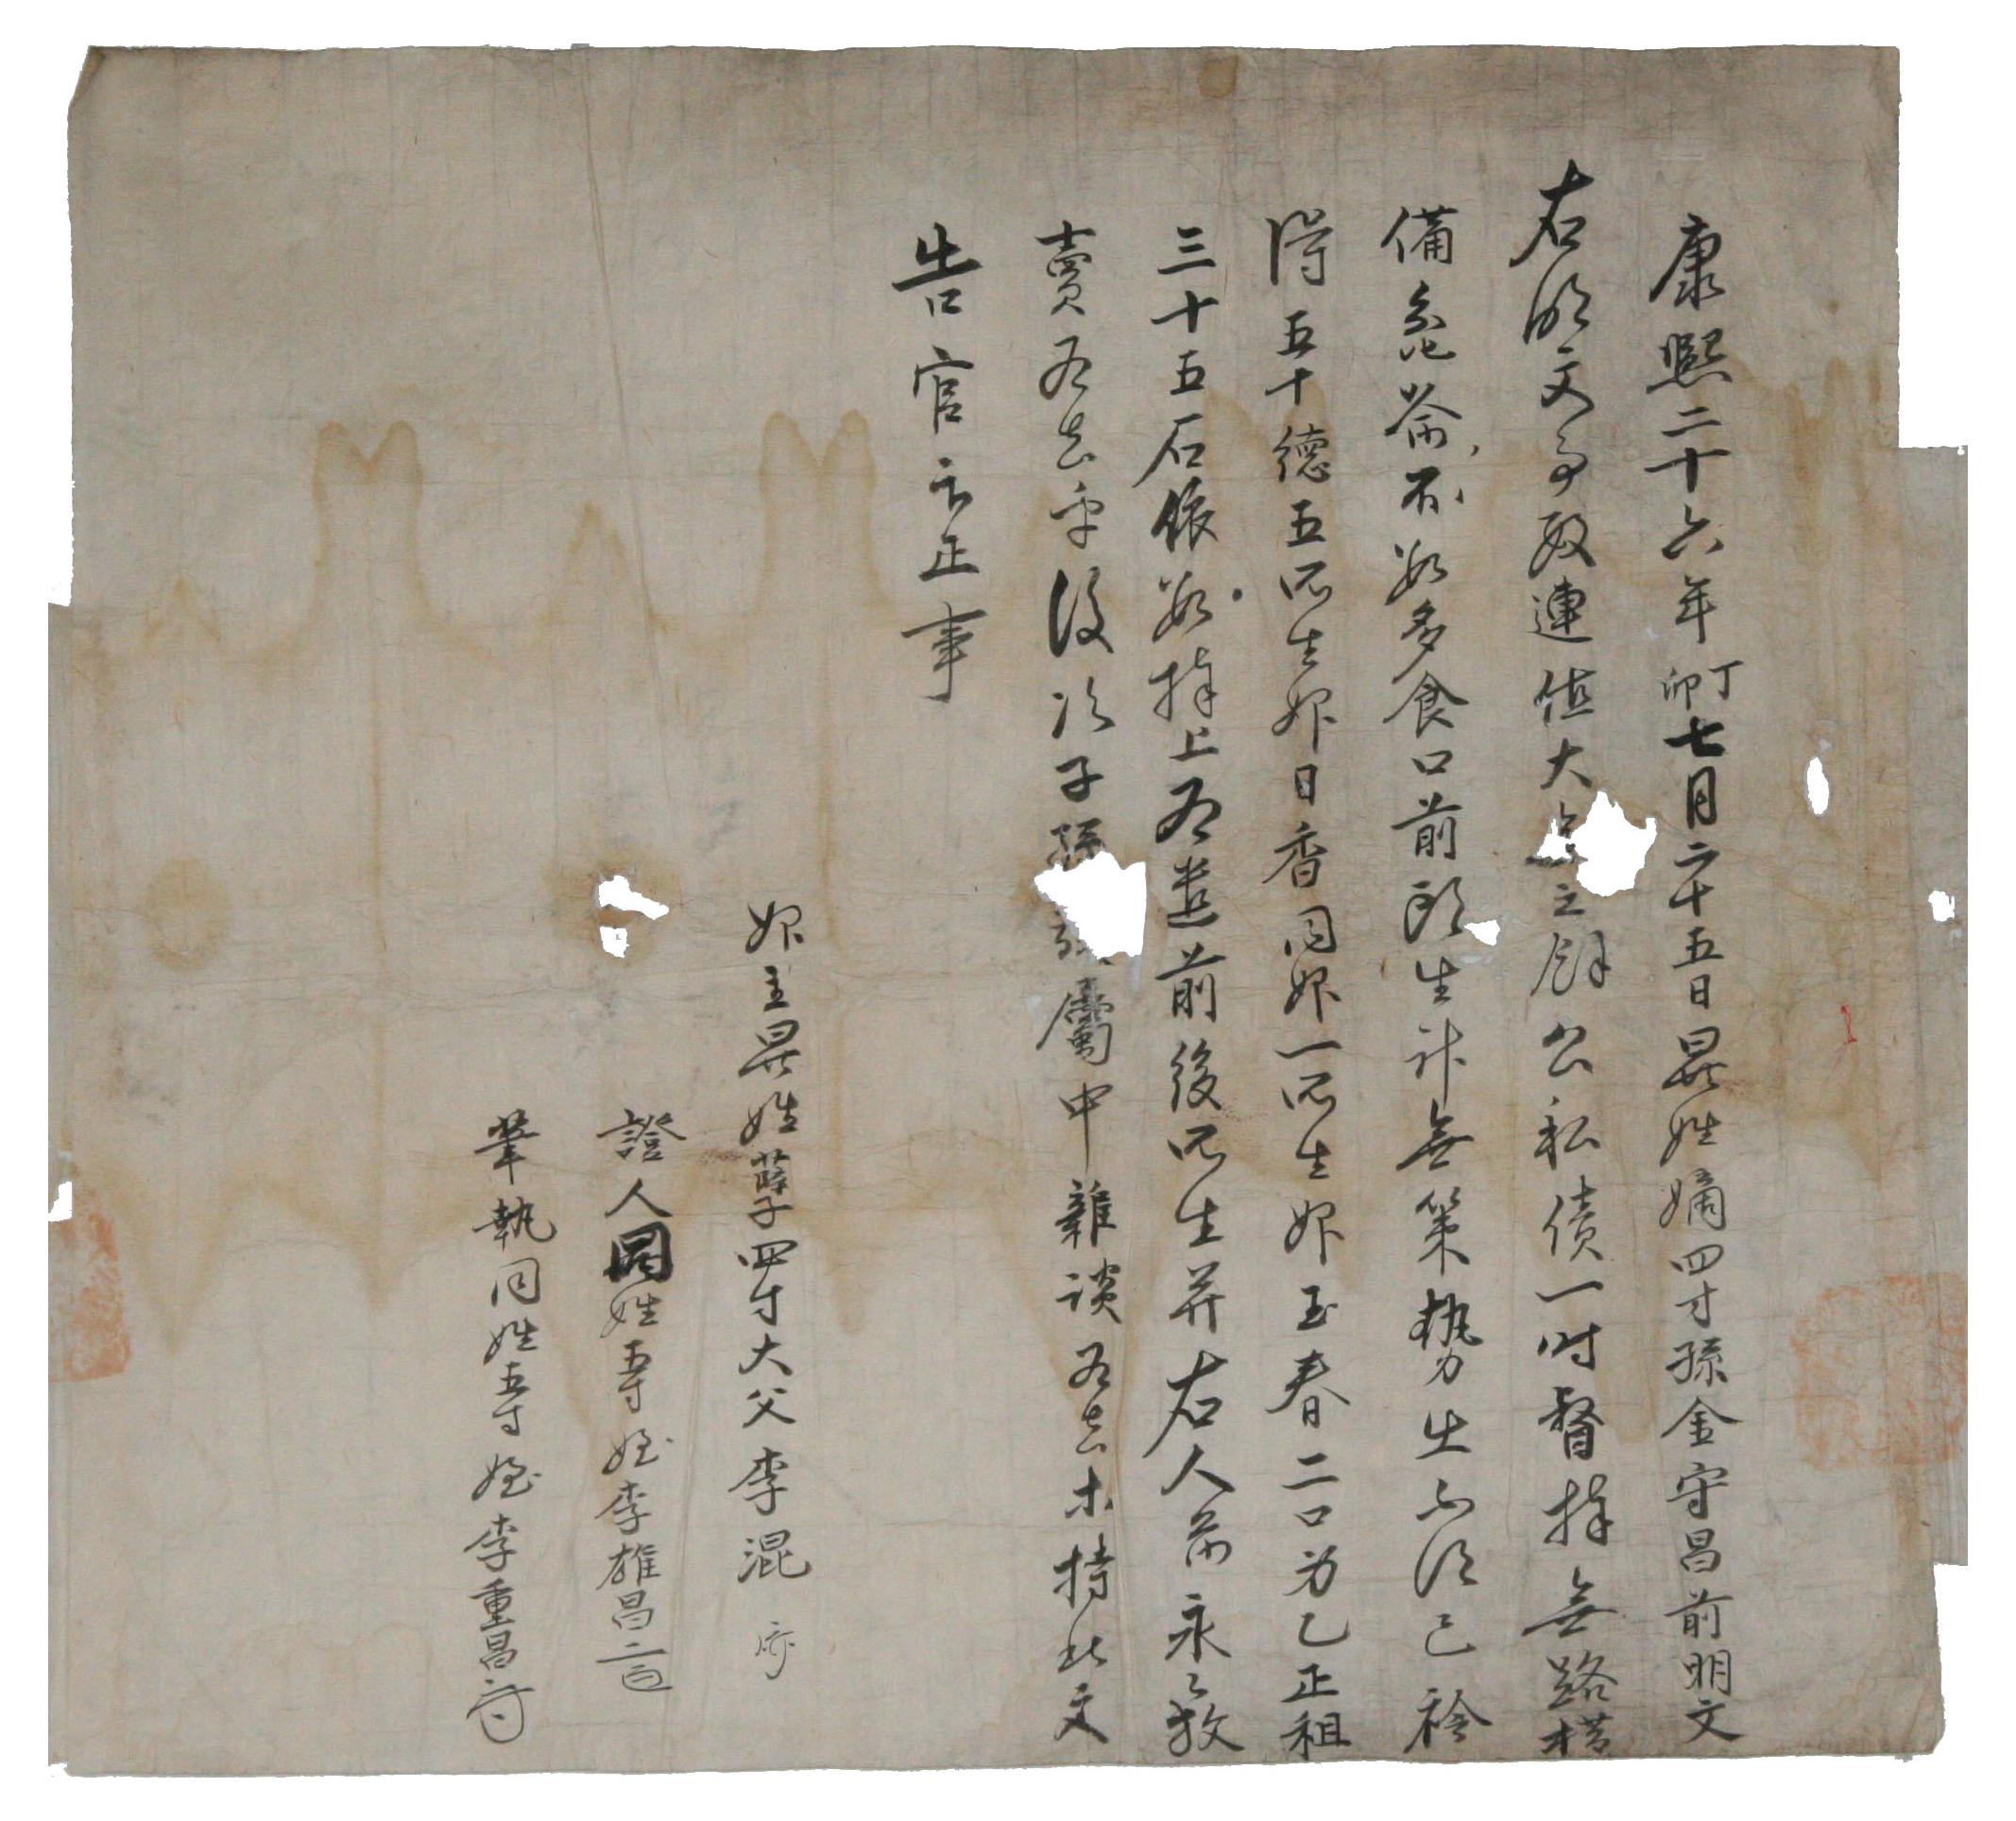 康熙二十六年丁卯七月二十五日異姓嫡四寸孫金守昌前明文
右明文事段連値大之餘公私債一時督捧無路措
備叱分不喩多食口前頭生計無策勢出不得已衿
得五十德五所生婢日香同婢一所生婢玉春二口乙正租
三十五石依數捧上爲遣前後所生并右人前永永放
賣爲去乎後次子孫屬中雜談爲去等持此文
告官卞正事
婢主異姓孽四寸大父李混
證人同姓五寸姪李雄昌
筆執同姓五寸姪李重昌